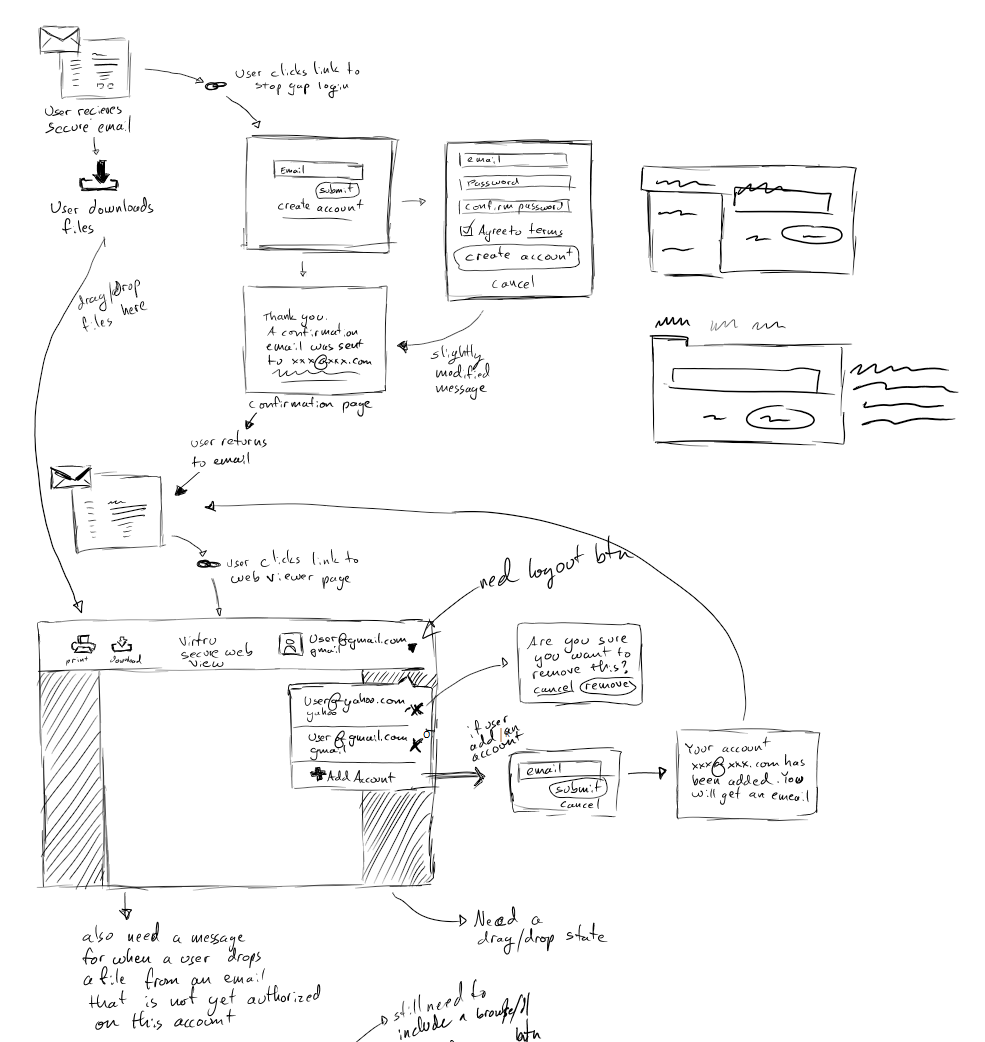 User recieves
secure email
User clicks link to
stop gap login
User downloads
files
drag/drop
files here
Email
submit
create account
email
Password
confirm password
Agree to terms
create account
cancel
Thank you.
A confirmation
email was sent
to xxx@xxx.com
confirmation page
slightly
modified
message
user returns
to email
user clicks link to
web viewer page
ned logout btn
print
Download
Virtru
secure web
view
User@gmail.com
gmail
User@yahoo.com
yahoo
User@gmail.com
gmail
Add Account
Are you sure
you want to
remove this?
cancel remove
if user
add an
account
email
submit
cancel
Your account
xxx@xxx.com has
been added. You
will get an emeail
Need a
drag/drop state
also need a message
for when a user drops
a file from an email
that is not yet authorized
on this account
still need to
include a
btn